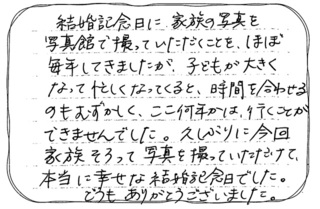 結婚記念日に家族の写真を
写真館で撮っていただくことを、ほぼ
毎年してきましたが、子どもが大きく
なって忙しくなってくると、時間を合わせる
のもむずかしく、ここ何年かは、行くことが
できませんでした。久しぶりに今回
家族そろって写真を撮っていただけて、
本当に幸せな結婚記念日でした。
どうもありがとうございました。